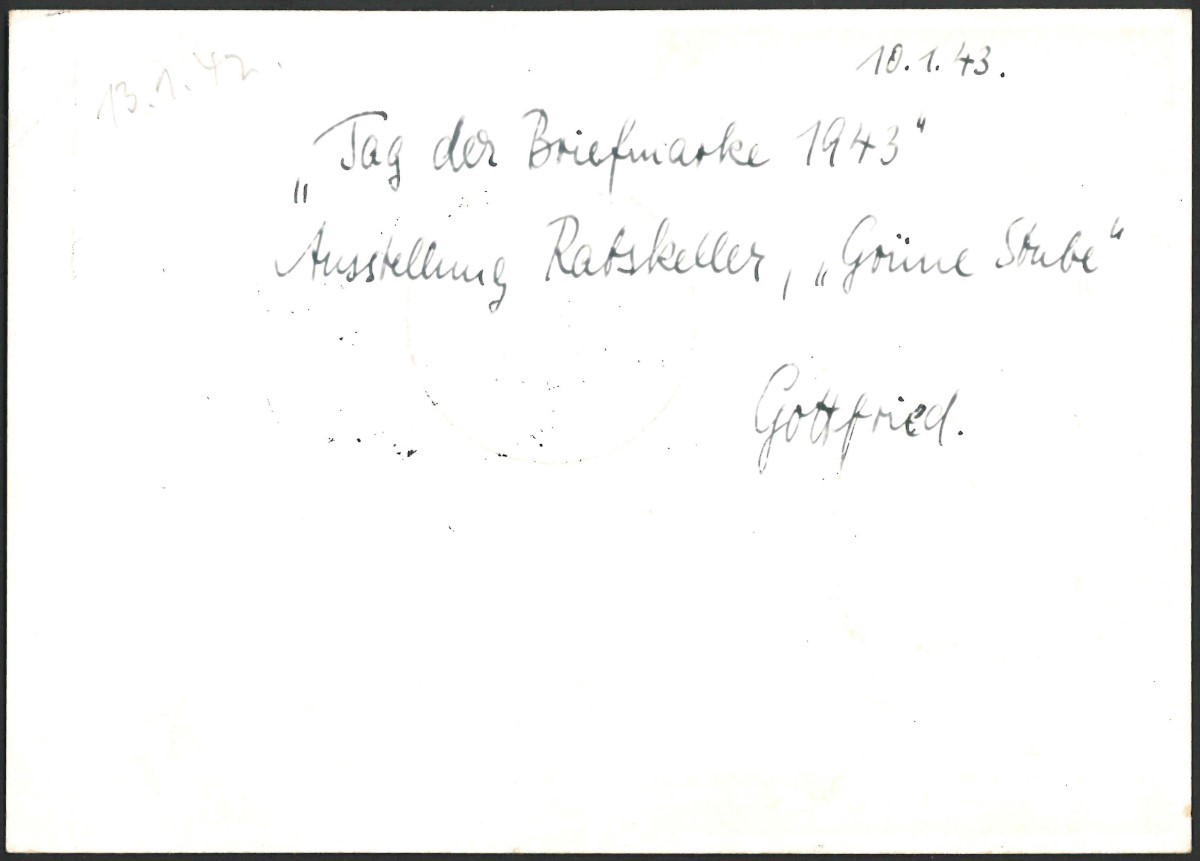 13.1.42.
10.1.43.
„Tag der Briefmarke 1943“
Ausstellung Ratskeller, „Grüne Stube“
Gottfried.